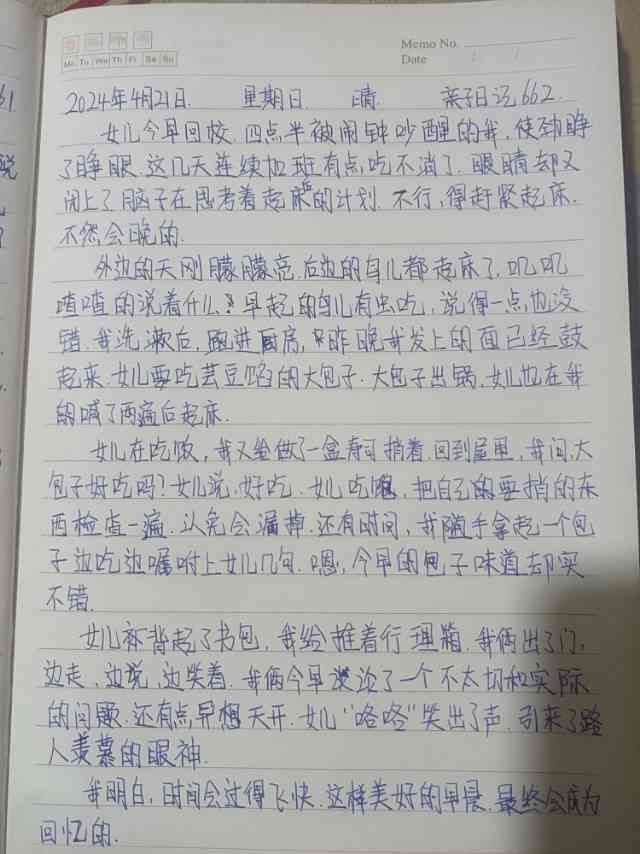 Memo No.
Mo Tu We Th Fr Sa Su
Date
2024年4月21日. 星期日. 晴. 亲子日记662.
女儿今早回校.四点半被闹钟吵醒的我,使劲睁
了睁眼.这几天连续加班有点吃不消了.眼睛却又
闭上了.脑子在思考着起床后的计划.不行,得赶紧起床.
不然会晚的.
外边的天刚朦朦亮.后边的鸟儿都起床了.叽叽
喳喳的说着什么?早起的鸟儿有虫吃,说得一点也没
错.我洗漱后,跑进厨房,昨晚我发上的面已经鼓
起来.女儿要吃芸豆馅的大包子.大包子出锅.女儿也在我
的喊了两遍后起床.
女儿在吃饭,我又给做了一盒寿司捎着.回到屋里,我问,大
包子好吃吗?女儿说.好吃.女儿吃饱,把自己的要捎的东
西检查一遍.认免会漏掉.还有时间,我随手拿起一个包
子边吃边嘱咐上女儿几句.嗯,今早的包子味道却实
不错.
女儿背起了书包,我给推着行理箱.我俩出了门,
边走、边说、边笑着.我俩今早谈论了一个不太切和实际
的问题.还有点异想天开.女儿"咯咯"笑出了声.引来了路
人羡慕的眼神.
我明白,时间会过得飞快.这样美好的早晨.最终会成为
回忆的.